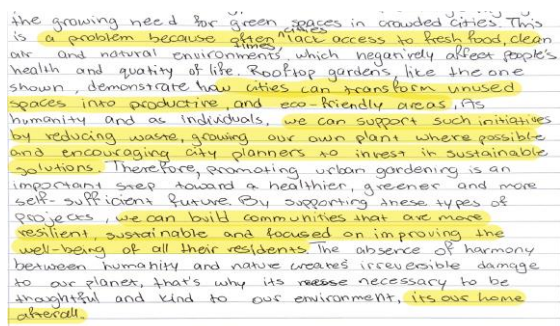 the growing need for green spaces in crowded cities. This
is a problem because often cities lack access to fresh food, clean
air and natural environments, which negatively affect people's
health and quality of life. Rooftop gardens, like the one
shown, demonstrate how cities can transform unused
spaces into productive, and eco-friendly areas. As
humanity and as individuals, we can support such initiatives
by reducing waste, growing our own plant where possible
and encouraging city planners to invest in sustainable
solutions. Therefore, promoting urban gardening is an
important step toward a healthier, greener and more
self-sufficient future. By supporting these types of
projects, we can build communities that are more
resilient, sustainable and focused on improving the
well-being of all their residents. The absence of harmony
between humanity and nature creates irreversible damage
to our planet, that's why its necessary to be
thoughtful and kind to our environment, its our home
afterall.